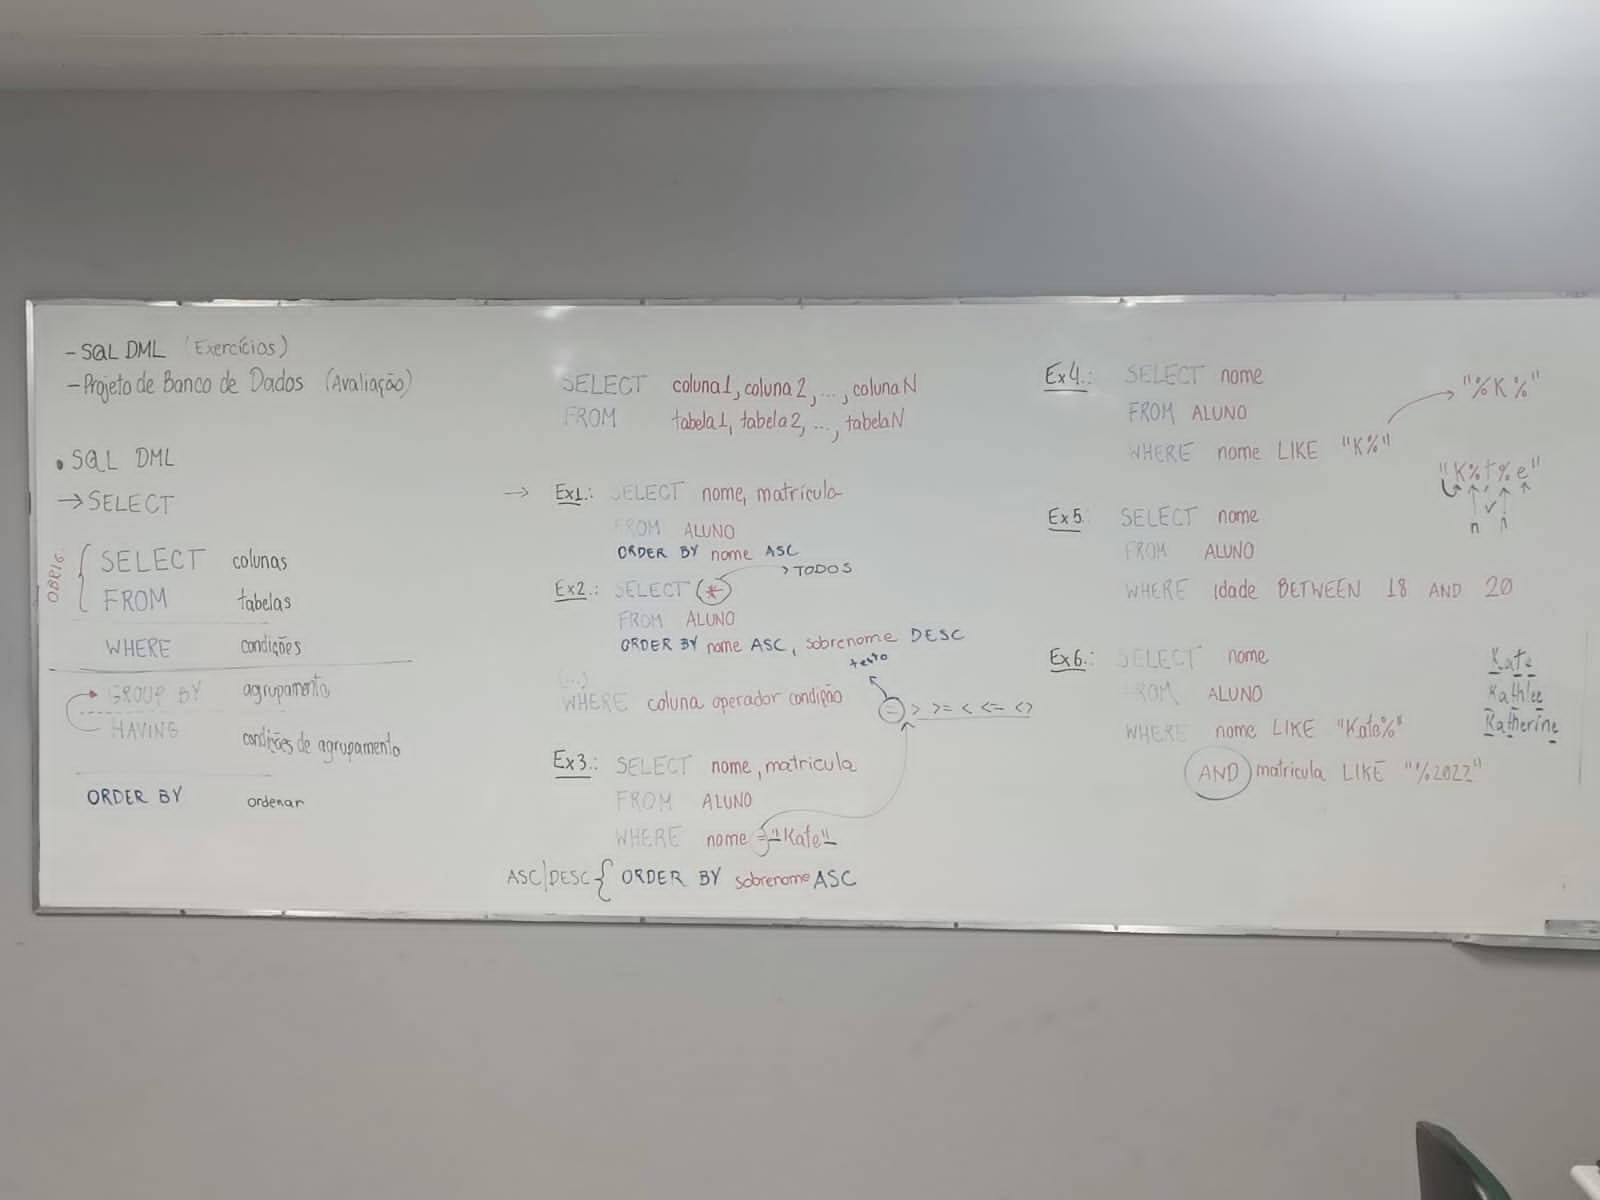 - SQL DML (Exercícios)
- Projeto de Banco de Dados (Avaliação)
• SQL DML
→ SELECT
OBRIG.
SELECT colunas
FROM tabelas
WHERE condições
GROUP BY agrupamento
HAVING condições de agrupamento
ORDER BY ordenar
SELECT coluna1, coluna2, ..., colunaN
FROM tabela1, tabela2, ..., tabelaN
→ Ex1.: SELECT nome, matrícula
FROM ALUNO
ORDER BY nome ASC
Ex2.: SELECT * → TODOS
FROM ALUNO
ORDER BY nome ASC, sobrenome DESC
(...)
WHERE coluna operador condição
texto
= > >= < <= <>
Ex3.: SELECT nome, matricula
FROM ALUNO
WHERE nome = "Kate"
ASC|DESC { ORDER BY sobrenome ASC
Ex4.: SELECT nome
FROM ALUNO
WHERE nome LIKE "K%"
"%K%"
"K%t%e"
n n
Ex5.: SELECT nome
FROM ALUNO
WHERE idade BETWEEN 18 AND 20
Ex6.: SELECT nome
FROM ALUNO
WHERE nome LIKE "Kate%"
AND matricula LIKE "%2022"
Kate
Kathlee
Katherine